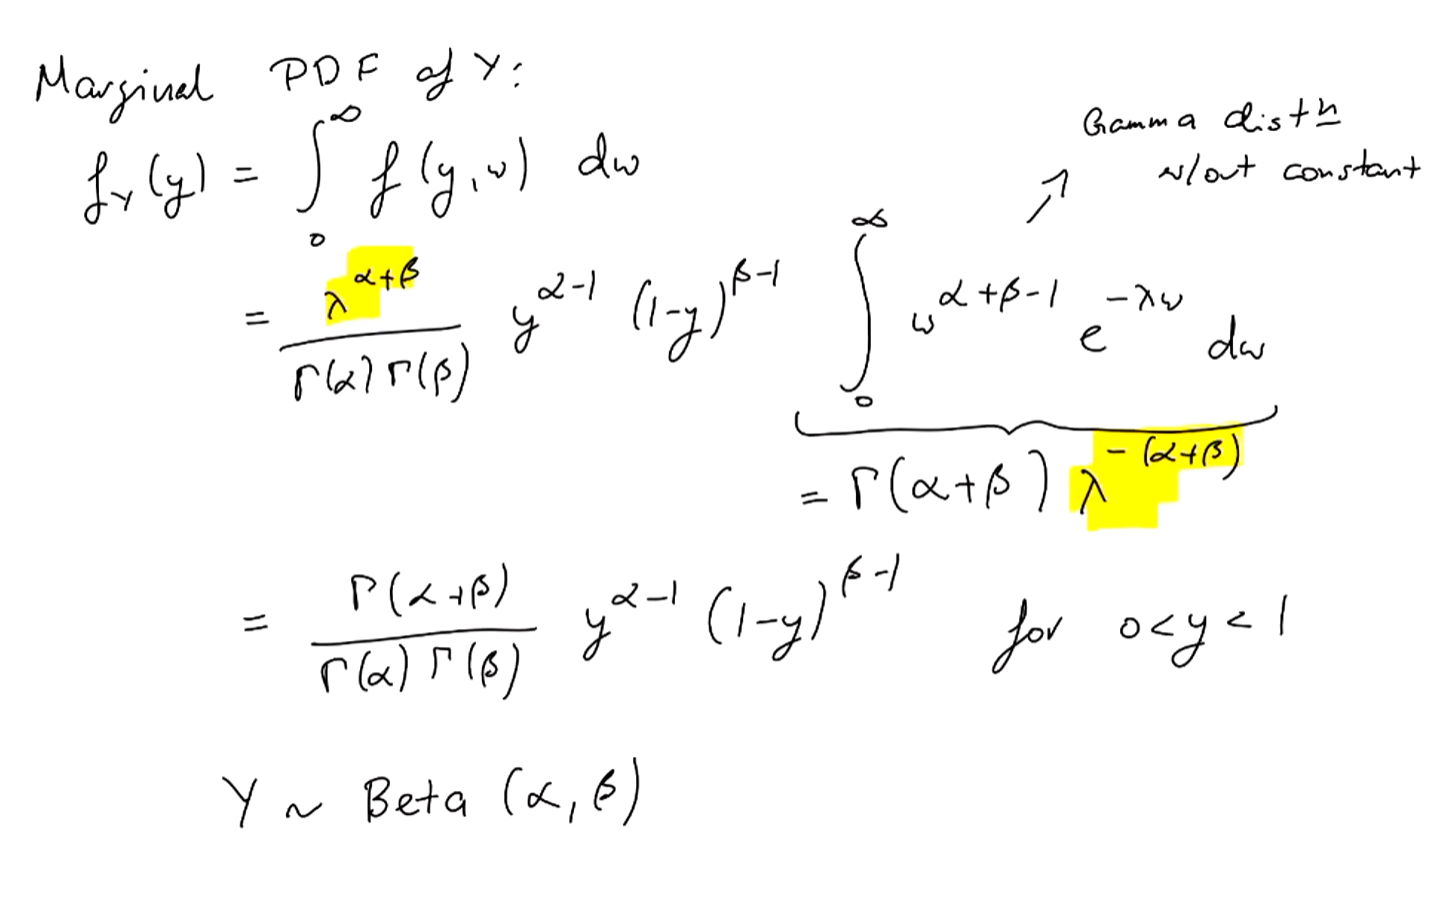 Marginal PDF of Y:
f_Y(y) = ∫_0^∞ f(y,w) dw
Gamma distn
w/out constant
= λ^{α+β} / (Γ(α) Γ(β)) y^{α-1} (1-y)^{β-1} ∫_0^∞ w^{α+β-1} e^{-λw} dw
= Γ(α+β) λ^{-(α+β)}
= Γ(α+β) / (Γ(α) Γ(β)) y^{α-1} (1-y)^{β-1} for 0<y<1
Y ~ Beta (α, β)